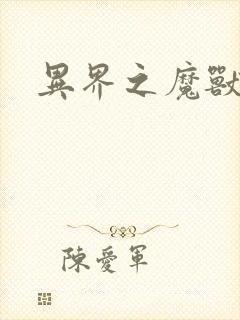 異界之魔獸
陳愛軍